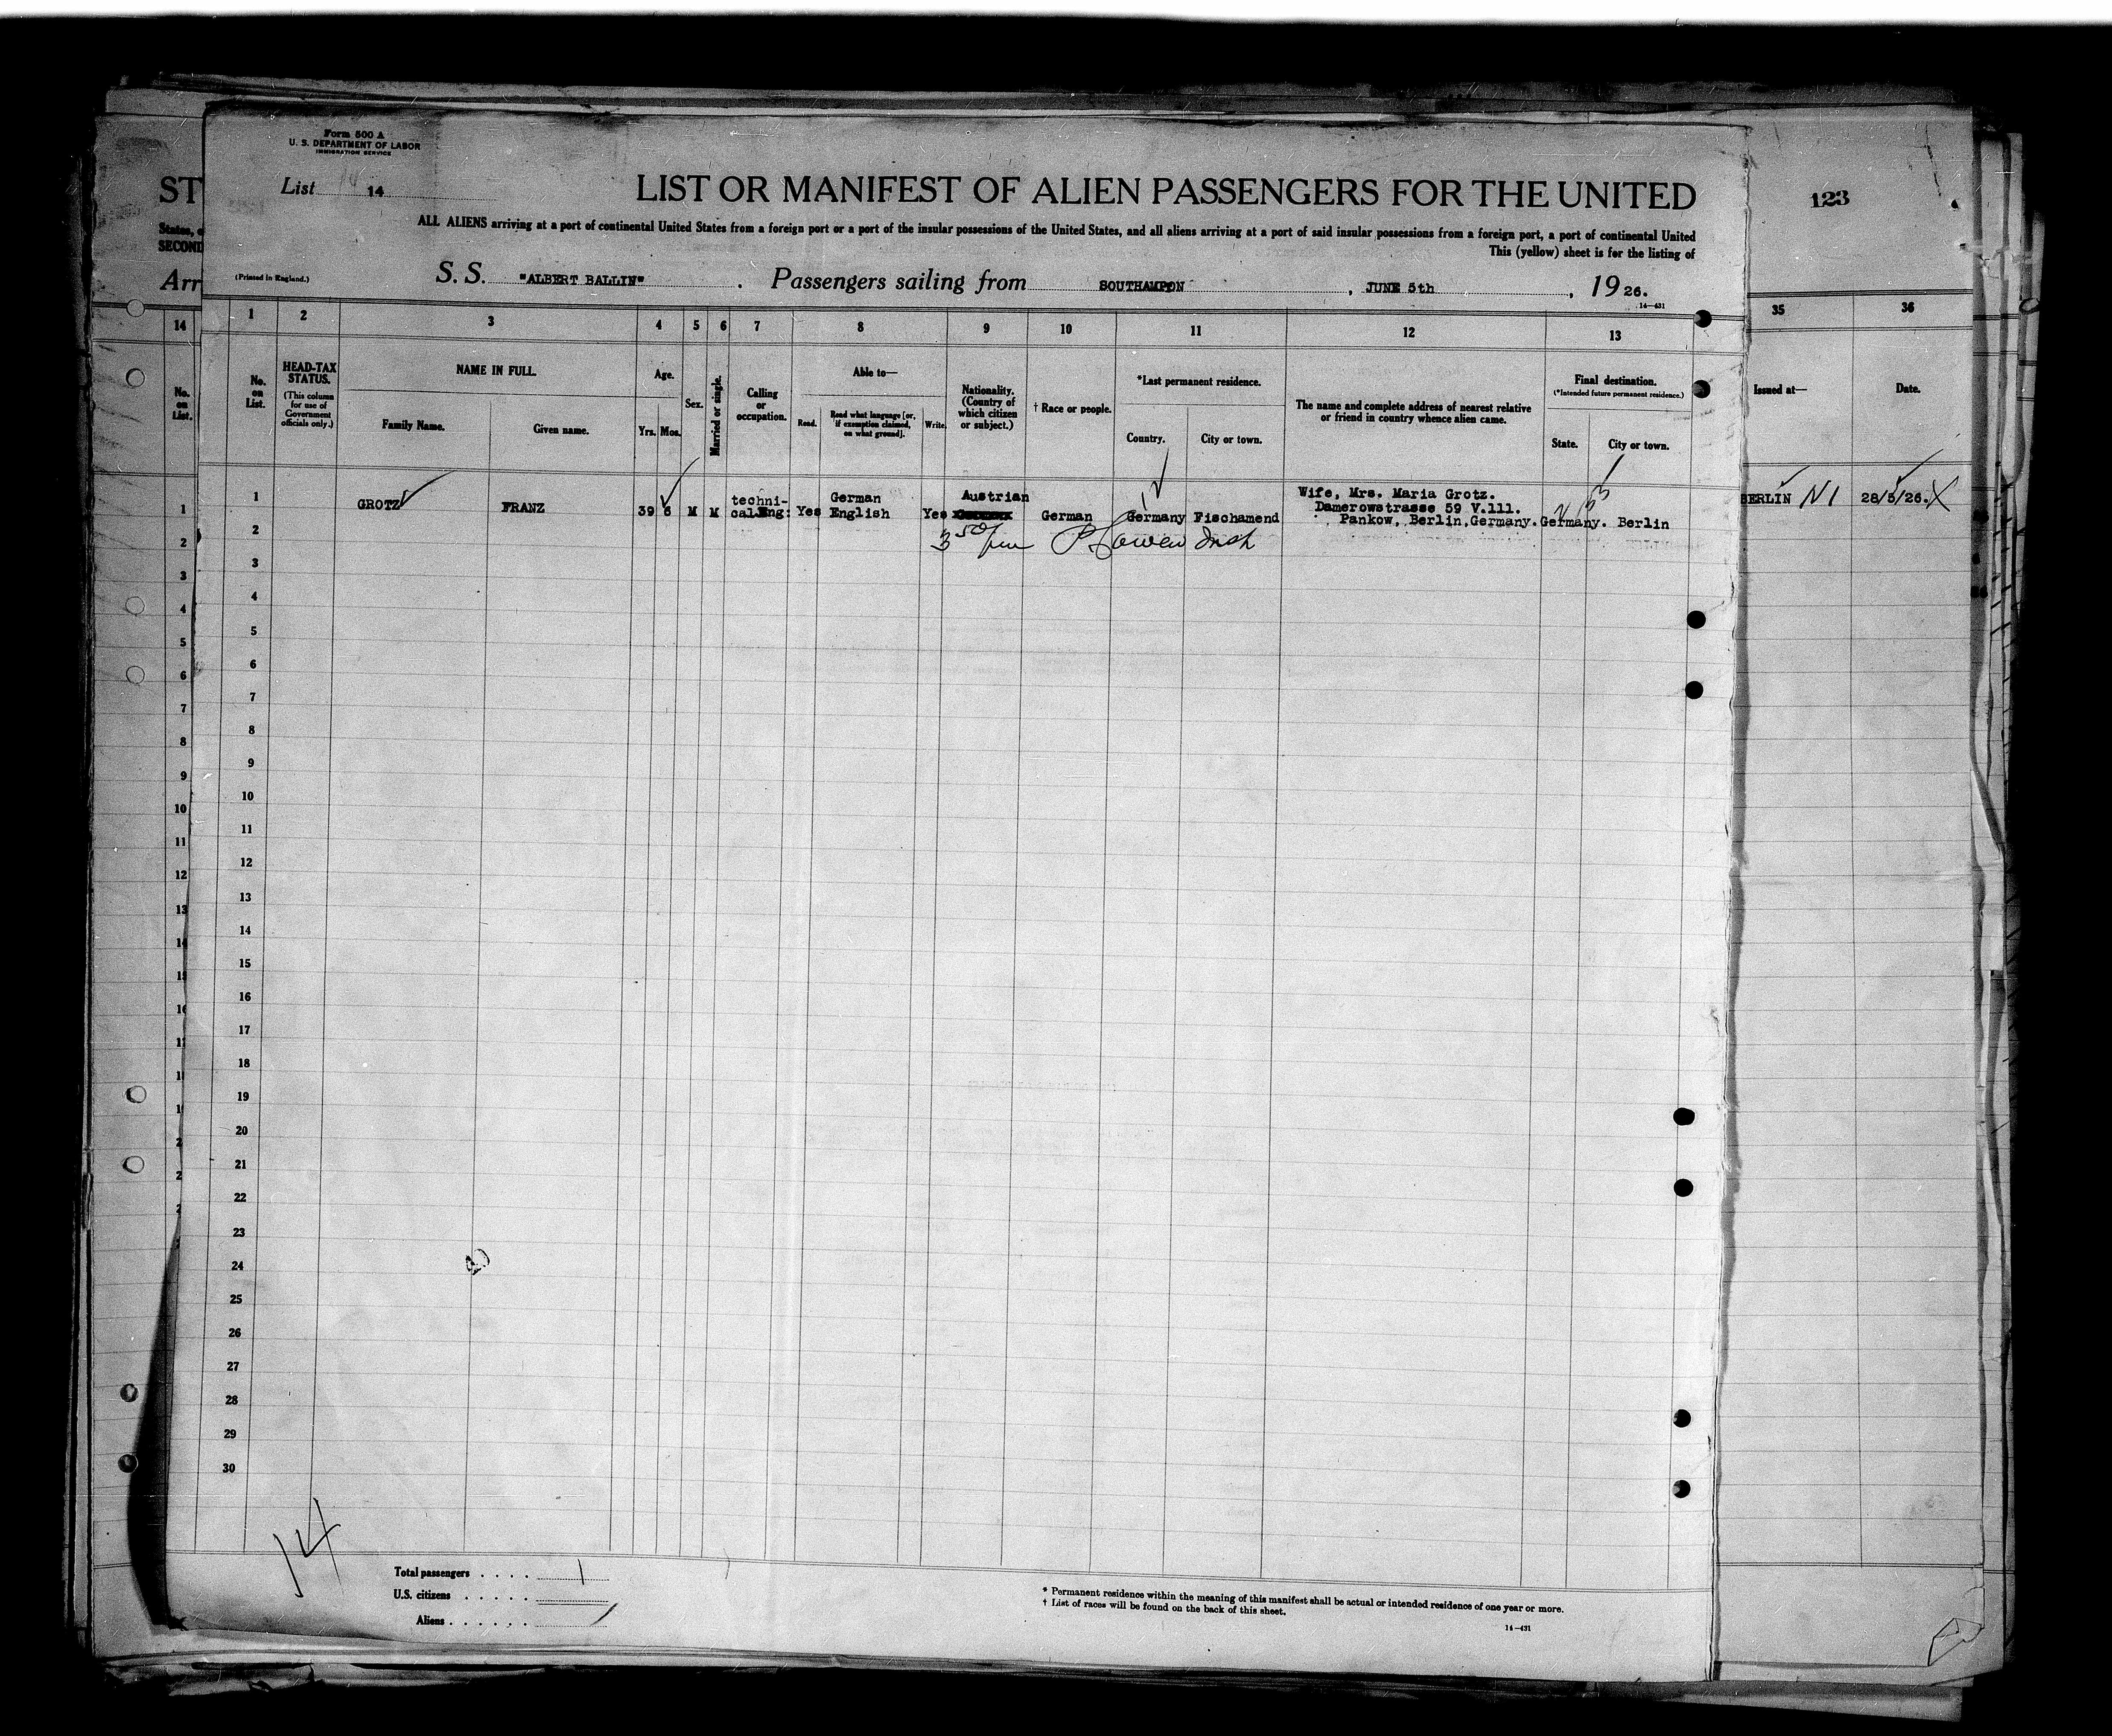 Form 500 A
U. S. DEPARTMENT OF LABOR
IMMIGRATION SERVICE
List 14
LIST OR MANIFEST OF ALIEN PASSENGERS FOR THE UNITED
ST
123
ALL ALIENS arriving at a port of continental United States from a foreign port or a port of the insular possessions of the United States, and all aliens arriving at a port of said insular possessions from a foreign port, a port of continental United
States, o
This (yellow) sheet is for the listing of
SECOND
Arr
(Printed in England.)
S. S. "ALBERT BALLIN" . Passengers sailing from SOUTHAMPTON , JUNE 5th , 19 26.
14—431
14 1 2 3 4 5 6 7 8 9 10 11 12 13 35 36
No. on List.
No. on List.
HEAD-TAX STATUS.
(This column for use of Government officials only.)
NAME IN FULL
Family Name.
Given name.
Age.
Yrs. Mos.
Sex.
Married or single.
Calling or occupation.
Able to—
Read.
Read what language [or, if exemption claimed, on what ground].
Write.
Nationality. (Country of which citizen or subject.)
† Race or people.
*Last permanent residence.
Country.
City or town.
The name and complete address of nearest relative or friend in country whence alien came.
Final destination.
(*Intended future permanent residence.)
State.
City or town.
Issued at—
Date.
1
GROTZ
FRANZ
39 6
M
M
techni-
cal Eng:
Yes
German
English
Yes
Austrian
German
Germany
Fischamend
Wife, Mrs. Maria Grotz.
Damerowstrasse 59 V.lll.
Pankow, Berlin,Germany.
Germany.
Berlin
BERLIN
28/5/26.
1
2
3
4
5
6
7
8
9
10
11
12
13
14
2
3
4
5
6
7
8
9
10
11
12
13
14
15
16
17
18
19
20
21
22
23
24
25
26
27
28
29
30
14
Total passengers . . . . 1
U.S. citizens . . . . . .
Aliens . . . . . . /
* Permanent residence within the meaning of this manifest shall be actual or intended residence of one year or more.
† List of races will be found on the back of this sheet.
14—431